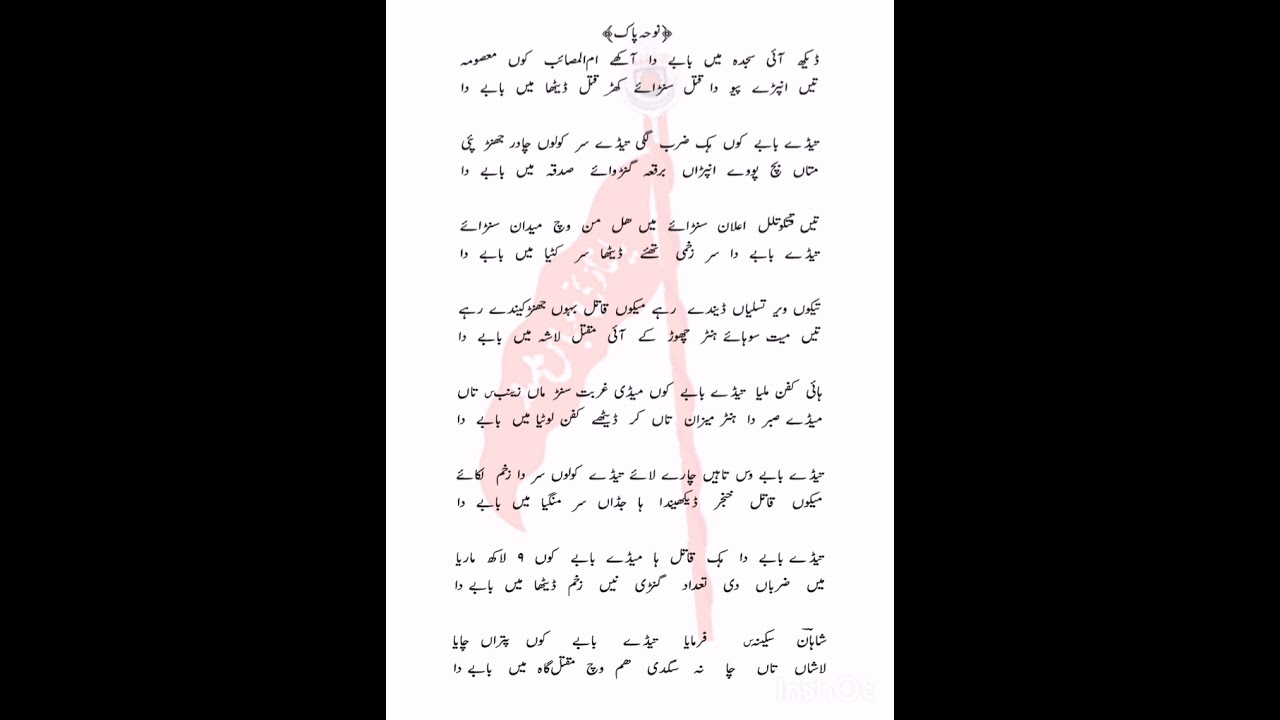 ﴿نوحہ پاک﴾
ڈیکھ آئی سجدہ میں بابے دا آکھے ام المصائب کوں معصومہ
تیں انپڑے پیو دا قتل سنڑائے کھڑ قتل ڈیٹھا میں بابے دا
تیڈے بابے کوں ہک ضرب لگی تیڈے سر کولوں چادر جھنڑ پئی
متاں بچ پووے انپڑاں برقعہ گنڑوائے صدقہ میں بابے دا
تیں اعلان سنڑائے میں ھل من وچ میدان سنڑائے
تیڈے بابے دا سر زخمی تھئے ڈیٹھا سر کٹیا میں بابے دا
تیکوں ویر تسلیاں ڈیندے رہے میکوں قاتل بہوں جھنڑکیندے رہے
تیں میت سوہائے ہنڑ چھوڑ کے آئی مقتل لاشہ میں بابے دا
ہائی کفن ملیا تیڈے بابے کوں میڈی غربت سنڑ ماں زینبس تاں
میڈے صبر دا ہنڑ میزان تاں کر ڈیٹھے کفن لوٹیا میں بابے دا
تیڈے بابے وس تاہیں چارے لائے تیڈے کولوں سر دا زخم لکائے
میکوں قاتل خنجر ڈیکھیندا ہا جڈاں سر منگیا میں بابے دا
تیڈے بابے دا ہک قاتل ہا میڈے بابے کوں ۹ لاکھ ماریا
میں ضرباں دی تعداد گنڑی نیں زخم ڈیٹھا میں بابے دا
شاہان سکینہس فرمایا تیڈے بابے کوں پتراں چایا
لاشاں تاں چا نہ سگدی ھم وچ مقتل گاہ میں بابے دا
InShOt